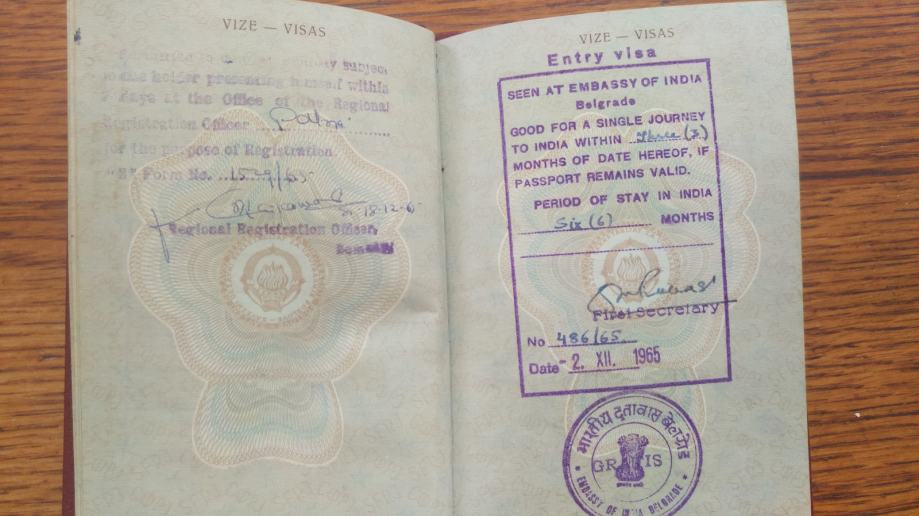 VIZE — VISAS
subject
to the holder presenting himself within
7 Days at the Office of the Regional
Registration Officer
for the purpose of Registration.
Form No. 1539/65
18-12-6
Regional Registration Officer,
VIZE — VISAS
Entry visa
SEEN AT EMBASSY OF INDIA
Belgrade
GOOD FOR A SINGLE JOURNEY
TO INDIA WITHIN three (3)
MONTHS OF DATE HEREOF, IF
PASSPORT REMAINS VALID.
PERIOD OF STAY IN INDIA
Six (6) MONTHS
First Secretary
No 486/65.
Date - 2. XII. 1965
भारतीय दूतावास बेलग्रेड
GR IS
* EMBASSY OF INDIA BELGRADE *